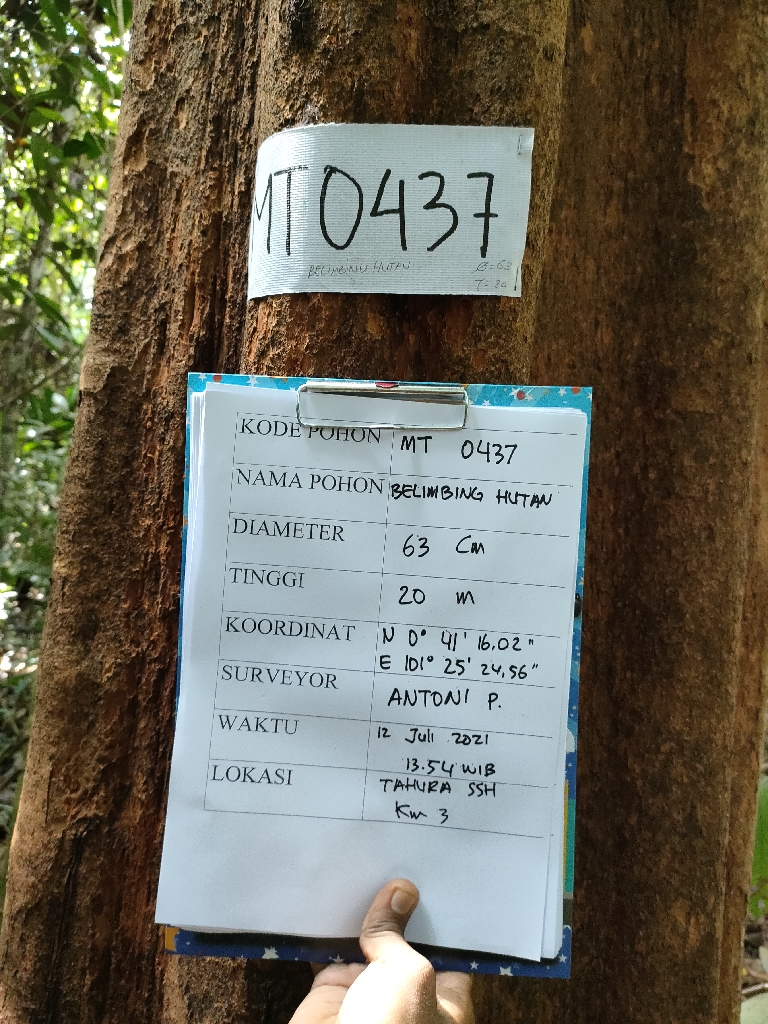 MT0437
BELIMBING HUTAN
Ø=63
T=20
KODE POHON MT 0437
NAMA POHON BELIMBING HUTAN
DIAMETER 63 Cm
TINGGI 20 m
KOORDINAT N 0° 41' 16.02"
E 101° 25' 24,56"
SURVEYOR ANTONI P.
WAKTU 12 Juli 2021
13.54 WIB
LOKASI TAHURA SSH
Km 3